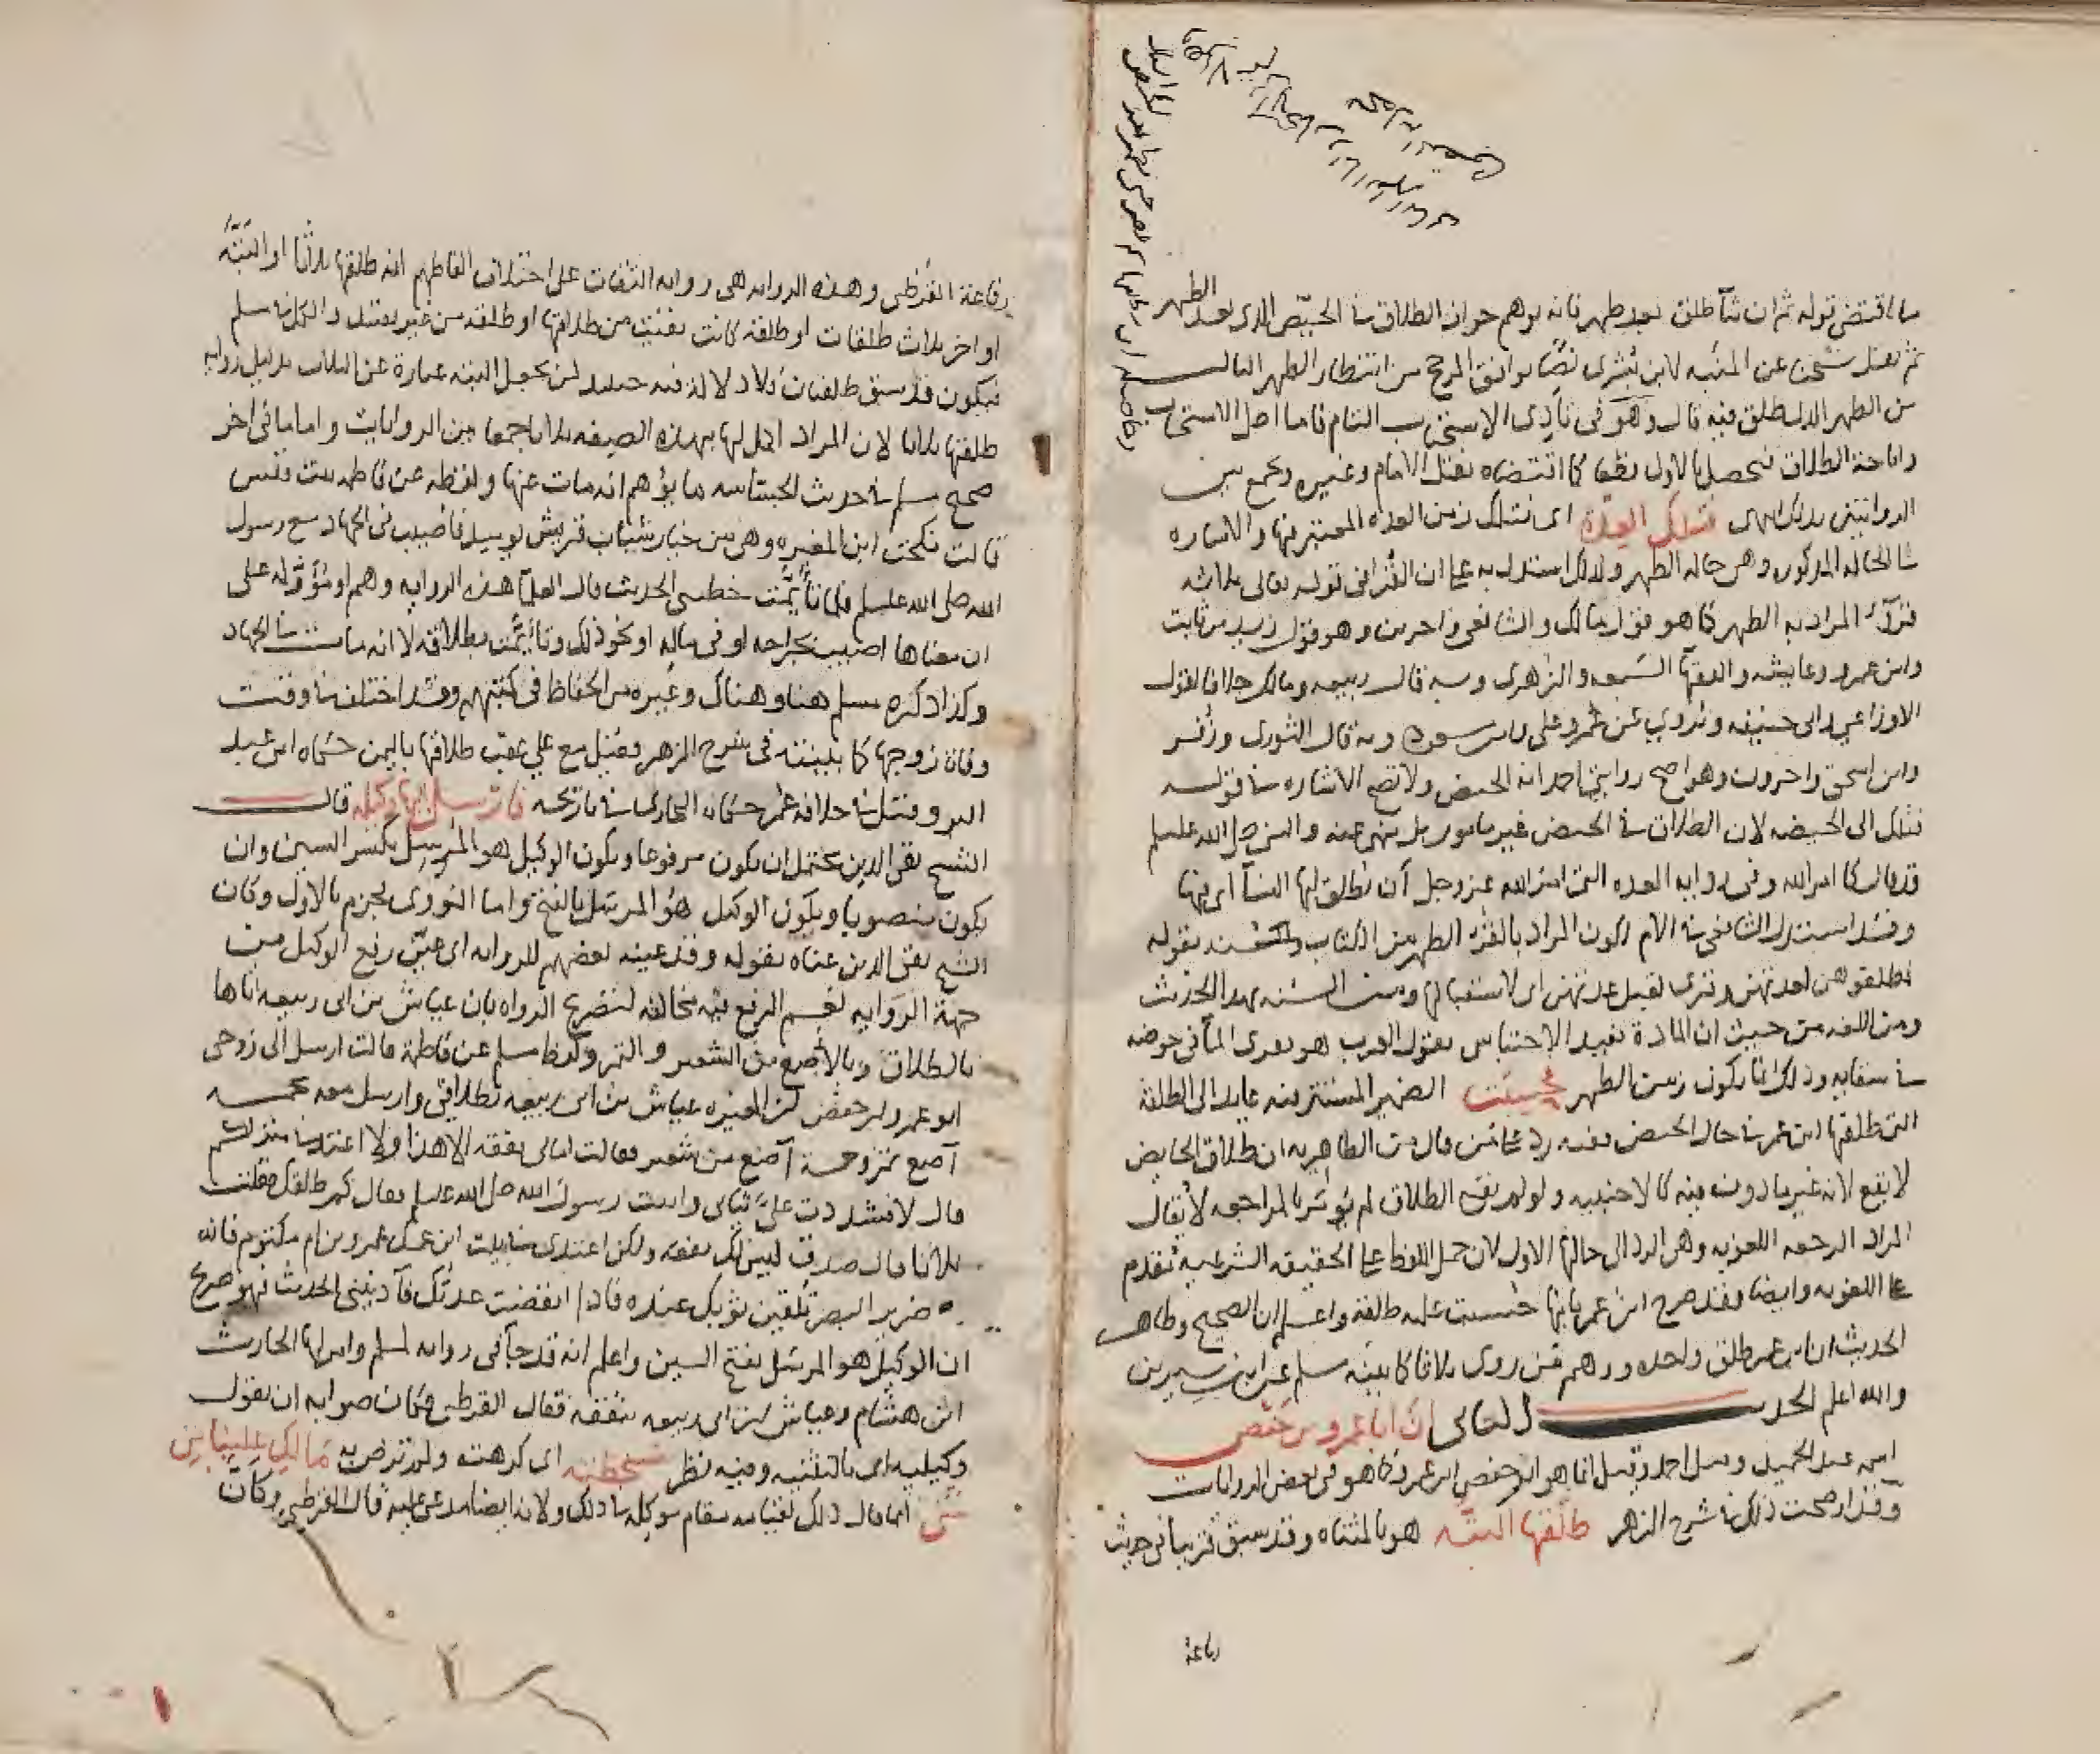 ما اقتضى قوله ثم ان شآ طلق بعد طهر فانه يوهم جواز الطلاق في الحيض الذى بعد الطهر
ثم نقل شيخنا عن المنبه لابن بشرى نصا يوافق المرجح من انتظار الطهر التالى
من الطهر الذى طلق فيه قال وهو فى تأدى الاستحباب التام فاما اصل الاستحباب
واباحة الطلاق فيحصل بالاول قطعا كما اقتضاه نقل الامام وغيره وجمع بين
الروايتين بذلك انتهى فتلك العدة اى فتلك زمن العدة المعتبر فيها والاشاره
الى الحاله المذكوره وهى حاله الطهر ولذلك استدل به على ان القرا فى قوله تعالى ثلاثه
قروء المراد به الطهر كما هو قول مالك والشافعى واخرين وهو قول زيد بن ثابت
وابن عمر وعايشه والفقهآ السبعه والزهرى وبه قال ربيعه ومالك خلافا لقول
الاوزاعي وابى حنيفه ويروي عن عمر وعلى وابن مسعود وبه قال الثورى وزفر
وابن اسحق واخرون وهو اصح روايتى احمد انه الحيض ولا تصح الاشاره في قوله
فتلك الى الحيضه لان الطلاق في الحيض غير مامور بل منهى عنه والنبى صلى الله عليه وسلم
قد قال كما امر الله وفى روايه العده التى امر الله عز وجل أن تطلق لها النسآ اى فيها
وقد استدل الشافعى في الام لكون المراد بالقرء الطهر من الكتاب بقوله
فطلقوهن لعدتهن وقرى لقبل عدتهن اى لاستقبالها ومن السنه بهذا الحديث
ومن اللغه من حيث ان المادة تفيد الاحتباس بقول العرب هو يقرى المآ فى حوضه
في سقايه وذلك انما يكون زمن الطهر فحسبت الضمير المستتر فيه عايد الى الطلقه
التى طلقها ابن عمر في حال الحيض ففيه رد على من قال من الظاهريه ان طلاق الحايض
لا يقع لانه غير مأذون فيه كالاجنبيه ولو لم يقع الطلاق لم يؤمر بالمراجعه لا يقال
المراد الرجعه اللغويه وهى الرد الى حالها الاول لان حمل اللفظ على الحقيقه الشرعيه تقدم
على اللغويه وايضا فقد صرح ابن عمر بانها حسبت عليه طلقة واعلم ان الصحيح وظاهر
الحديث ان ابن عمر طلق واحده ووهم من روى ثلاثا كما بينه مسلم عن ابن سيرين
والله اعلم الحديث الثانى ان ابا عمرو بن حفص
اسمه عبد الحميد وقيل احمد وقيل انما هو ابو حفص ابن عمرو كما هو فى بعض الروايات
وقد اوضحت ذلك في شرح الزهر طلقها البته هو بالمثناه وقد سبق قريبا فى حديث
رفاعة
رفاعة القرظى وهذه الروايه هى روايه الثقات على اختلاف الفاظهم انه طلقها ثلاثا او البتّه
او اخر ثلاث طلقات او طلقه كانت بقيت من طلاقها او طلقه من غير تقييد والكل في مسلم
فيكون قد سبق طلقتان فلا دلالة فيه حينئذ لمن يجعل البته عبارة عن الثلاث بدليل روايه
طلقها ثلاثا لان المراد اكمل لها بهذه الصيغه ثلاثا جمعا بين الروايات واما ما فى اخر
صحيح مسلم في حديث الجساسه ما يوهم انه مات عنها ولفظه عن فاطمه بنت قيس
قالت نكحت ابن المغيره وهو من خيار شباب قريش يوميذ فاصيب فى الجهاد مع رسول
الله صلى الله عليه وسلم فلما تأيّمت خطبنى الحديث قال العلمآ هذه الروايه وهم او مؤوله على
ان معناها اصيب بجراحه او فى ماله او نحو ذلك وتأيّمت بطلاقه لا انه مات في الجهاد
وكذا ذكره مسلم هنا وهناك وغيره من الحفاظ فى كتبهم وقد اختلف في وقت
وفاة زوجها كما بينته فى شرح الزهر فقيل مع علي عقب طلاقها باليمن حكاه ابن عبد
البر وقيل في خلافه عمر حكاه البخارى في تاريخه فارسل اليها وكيله قال
الشيخ تقى الدين يحتمل ان يكون مرفوعا ويكون الوكيل هو المرسِل بكسر السين وان
يكون منصوبا ويكون الوكيل هو المرسَل بالفتح واما النووى فجزم بالاول وكان
الشيخ تقى الدين عناه بقوله وقد عينه بعضهم للروايه اى عيّن رفع الوكيل من
جهة الروايه نعم الرفع فيه مخالفه لتصريح الرواه بان عياش بن ابى ربيعه اتاها
بالطلاق وبالآصع من الشعير والتمر ولفظ مسلم عن فاطمة قالت ارسل الى زوجى
ابو عمرو بن حفص بن المغيره عياش بن ابى ربيعه بطلاقى وارسل معه بخمسه
آصع تمر وخمسة آصع من شعير فقالت امالى نفقه الا هذا ولا اعتد في منزلكم
قال لا فشددت علىّ ثيابى واتيت رسول الله صلى الله عليه وسلم فقال كم طلقك فقلت
ثلاثا قال صدق ليس لك نفقه ولكن اعتدى في بيت ابن عمك عمرو بن ام مكتوم فانه
ضرير البصر تلقين ثوبك عنده فاذا انقضت عدتك فآذنينى الحديث فهو صريح
ان الوكيل هو المرسَل بفتح السين واعلم انه قد جآ فى روايه لمسلم وامر لها الحارث
ابن هشام وعياش بن ابى ربيعه بنفقه فقال القرطبى فكان صوابه ان يقول
وكيليه اى بالتثنيه وفيه نظر فسخطته اى كرهته ولم ترض به مالك علينا من
شى انما قال ذلك لقيامه مقام موكله في ذلك ولانه ايضا مدعى عليه قال القرطبى وكان